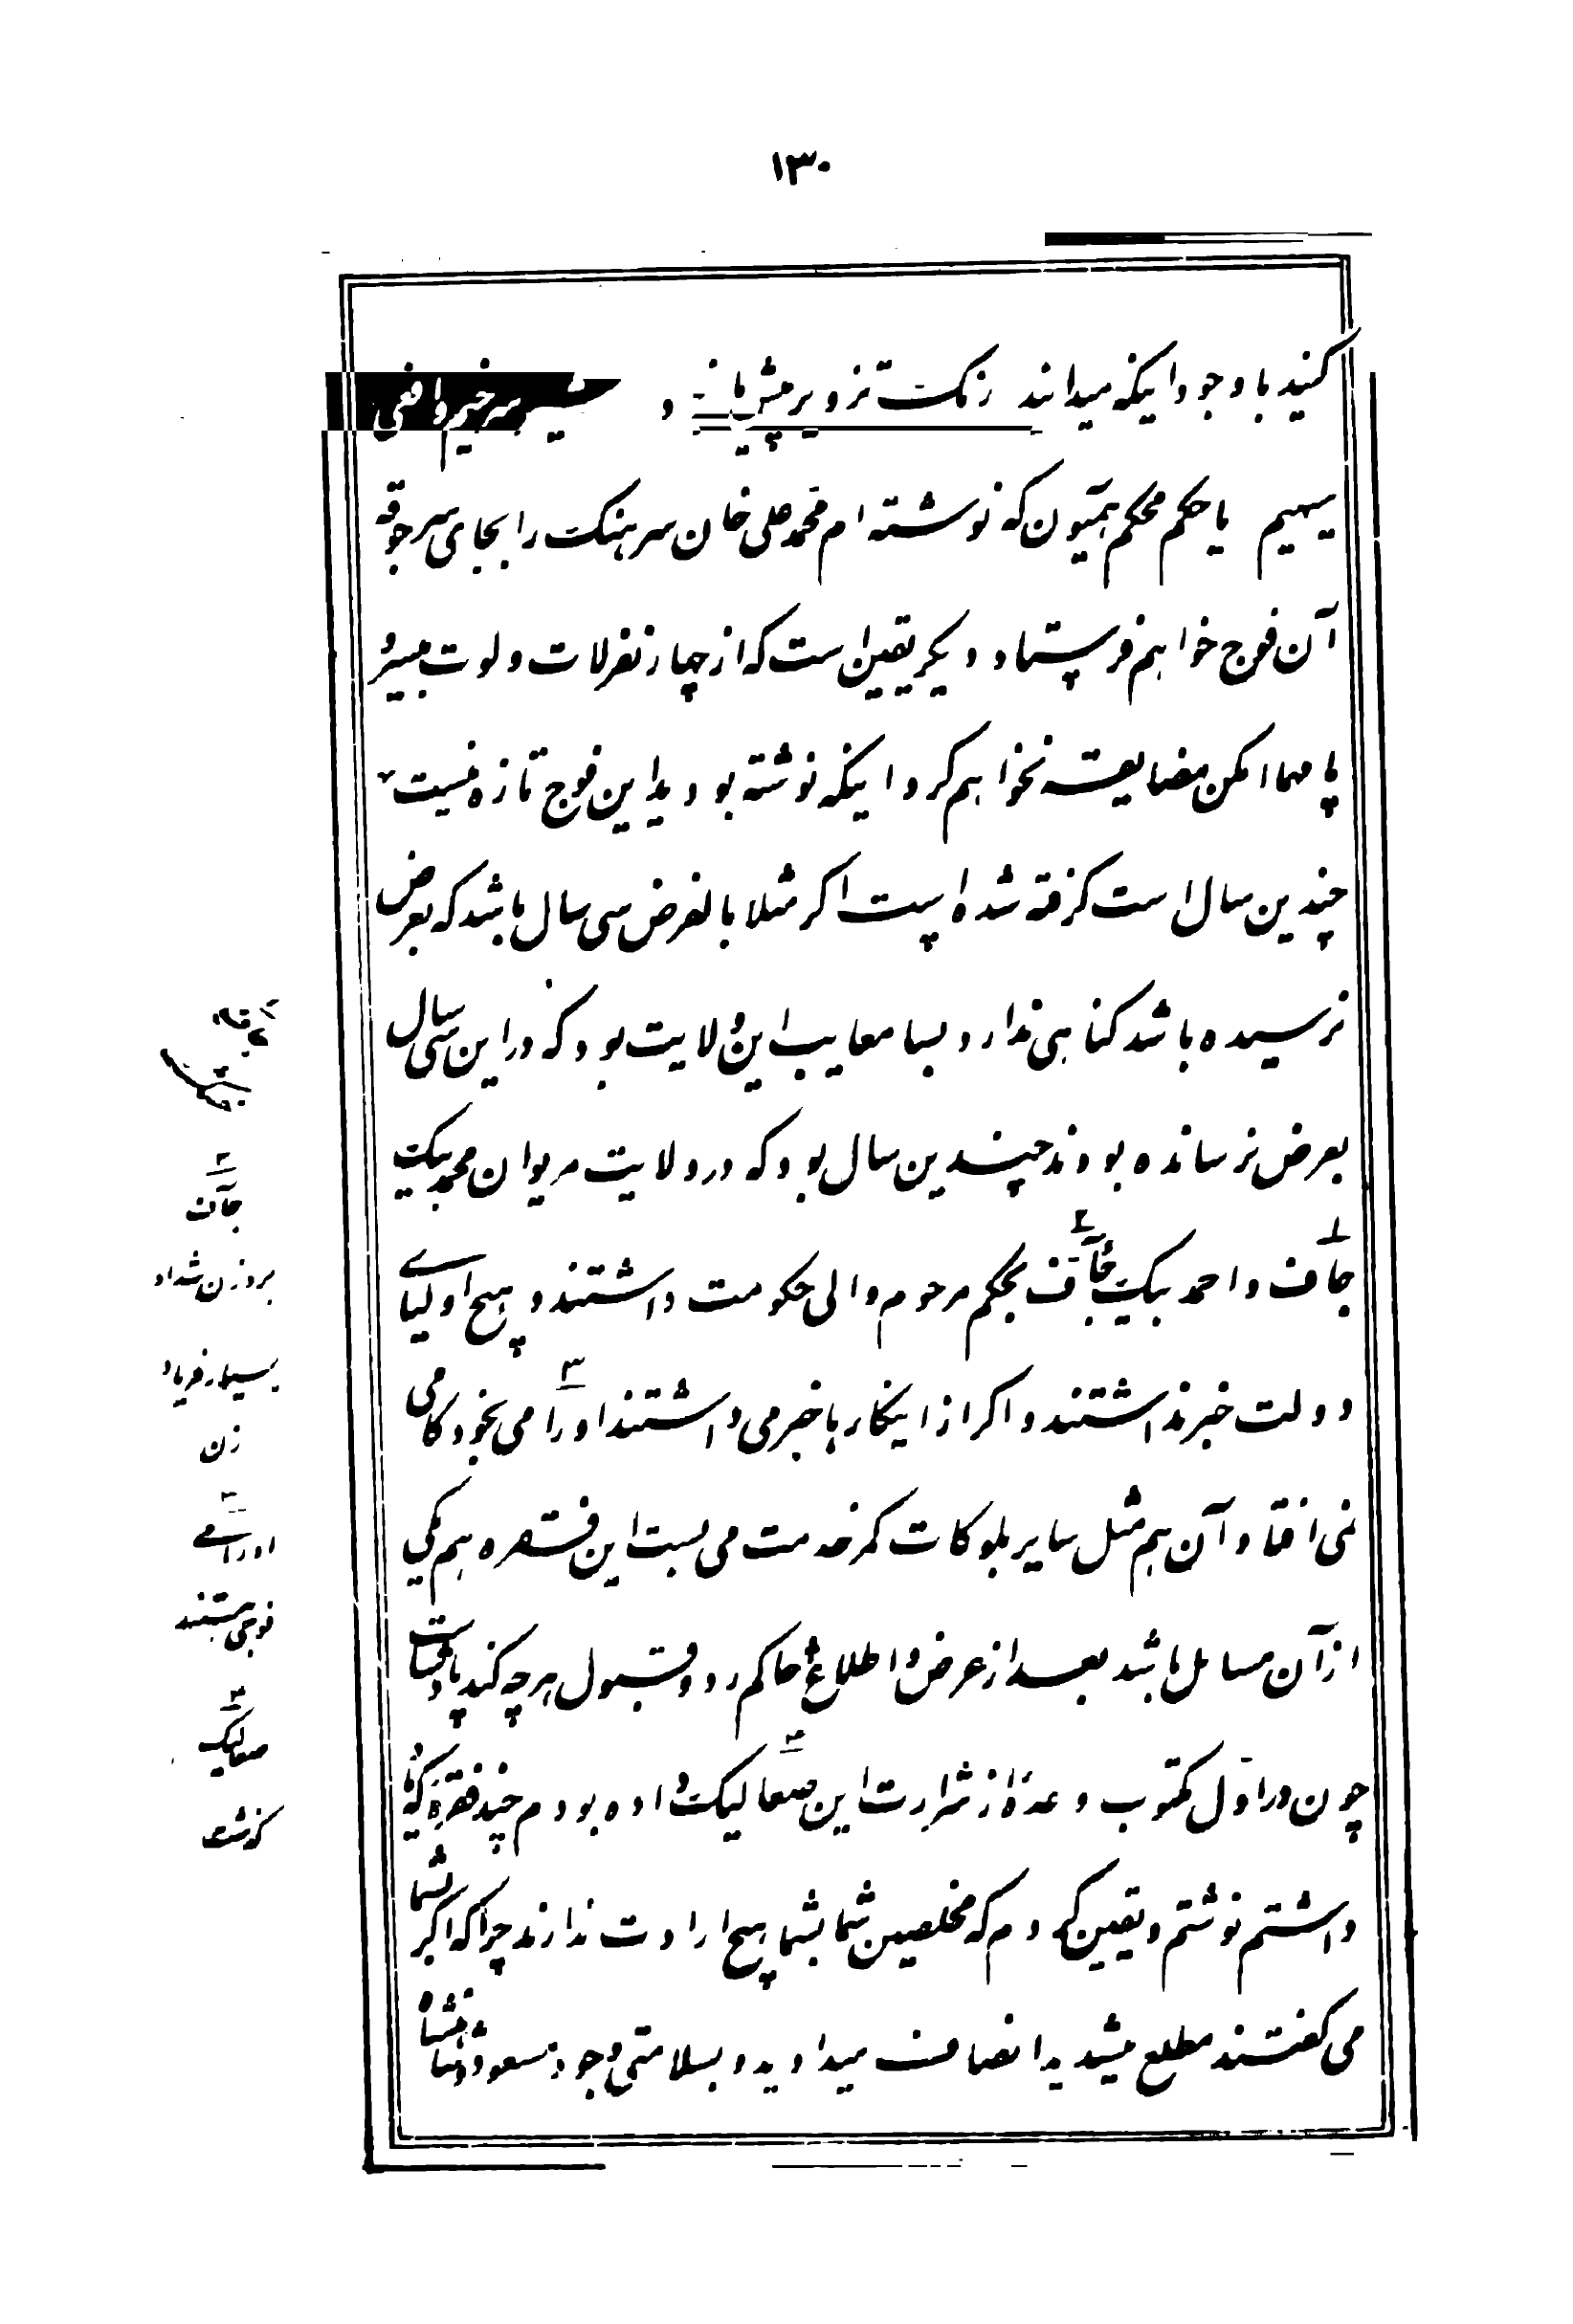 ۱۳۰
کنید با وجود اینکه میدانند رنگ تزویر پیش ما نه و
یا حکم محکم همیون که نوشته ام محمد علی خان سرهنگ را بجای سرجوقه
آن فوج خواهم فرستاد و دیگر یقین است که از چهار نفر لات و لوت بی سر و
پا مهما امکن مضایقت نخواهم کرد اینکه نوشته بودید این فوج تازه نیست
چندین سال است گرفته شده است اگر مثلا بالفرض سی سال باشد که بعرض
نرسیده باشد گناهی ندارد بسا معایب این ولایت بود که در این سی سال
بعرض نرسانده بودند چندین سال بود که در ولایت مریوان محمد بیک
جاف و احمد بیک جاف بحکم مرحوم والی حکومت داشتند و هیچ اولیای
دولت خبر نداشتند و اگر از اینکار باخبر می داشتند اورامی بخود کامی
نمی افتاد آن هم مثل سایر بلوکات کمر خدمت می بست این فقره هم یکی
از آن مسایل باشد بعد از عرض و اطلاع حاکم رد و قبول هر چه کند پادشاست
چون در اول مکتوب وعدهٔ از شرارت این صعالیک داده بودم چند فقرهٔ که
داشتم نوشتم و یقین کردم که مخلصین شما بشما هیچ ارادت ندارند چرا که اگر بشما
می گفتند مطلع میشدید انصاف میدادید و بسلامتی وجود مسعود شاهنشاه
۲
جاف
بر وزن شداد
بسیار فریاد
زن
۳
اورامی
فوجی هستند
۴
صعالیک
گذشت